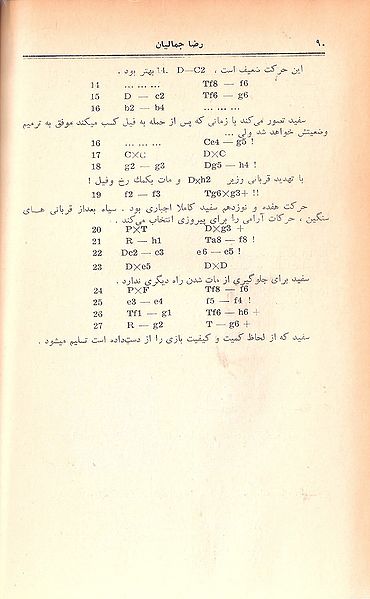 ۹۰ رضا جمالیان
این حرکت ضعیف است ، 14. D—C2 بهتر بود .
14 ... ... ... Tf8 — f6
15 D — c2 Tf6 — g6
16 b2 — b4 ... ... ...
سفید تصور می‌کند با زمانی که پس از حمله به فیل کسب میکند موفق به ترمیم
وضعیتش خواهد شد ولی ...
16 ... ... ... Ce4 — g5 !
17 C×C D×C
18 g2 — g3 Dg5 — h4 !
با تهدید قربانی وزیر D×h2 و مات بکمك رخ وفیل !
19 f2 — f3 Tg6×g3+ !!
حرکت هفده و نوزدهم سفید کاملا اجباری بود . سیاه بعداز قربانی های
سنگین ، حرکات آرامی را برای پیروزی انتخاب می‌کند .
20 P×T D×g3 +
21 R — h1 Ta8 — f8 !
22 Dc2 — e3 e6 — e5 !
23 D×e5 D×D
سفید برای جلوگیری از مات شدن راه دیگری ندارد .
24 P×F Tf8 — f6
25 e3 — e4 f5 — f4 !
26 Tf1 — g1 Tf6 — h6 +
27 R — g2 T — g6 +
سفید که از لحاظ کمیت و کیفیت بازی را از دست‌داده است تسلیم میشود .